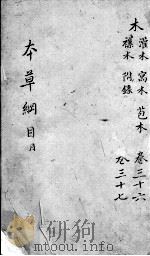 木
灌木 寓木 苞木 卷三十六
襍木 附錄 卷三十七
本草綱目
www.toutu.com